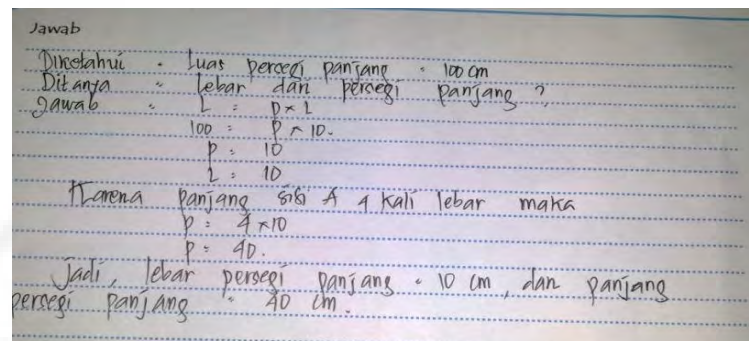 Jawab
Diketahui : Luas persegi panjang = 100 cm
Ditanya : lebar dari persegi panjang ?
Jawab : L = p × l
100 = p × 10.
p = 10
l = 10
Karena panjang sisi A 4 kali lebar maka
p = 4 × 10
p = 40.
Jadi, lebar persegi panjang = 10 cm, dan panjang
persegi panjang = 40 cm.